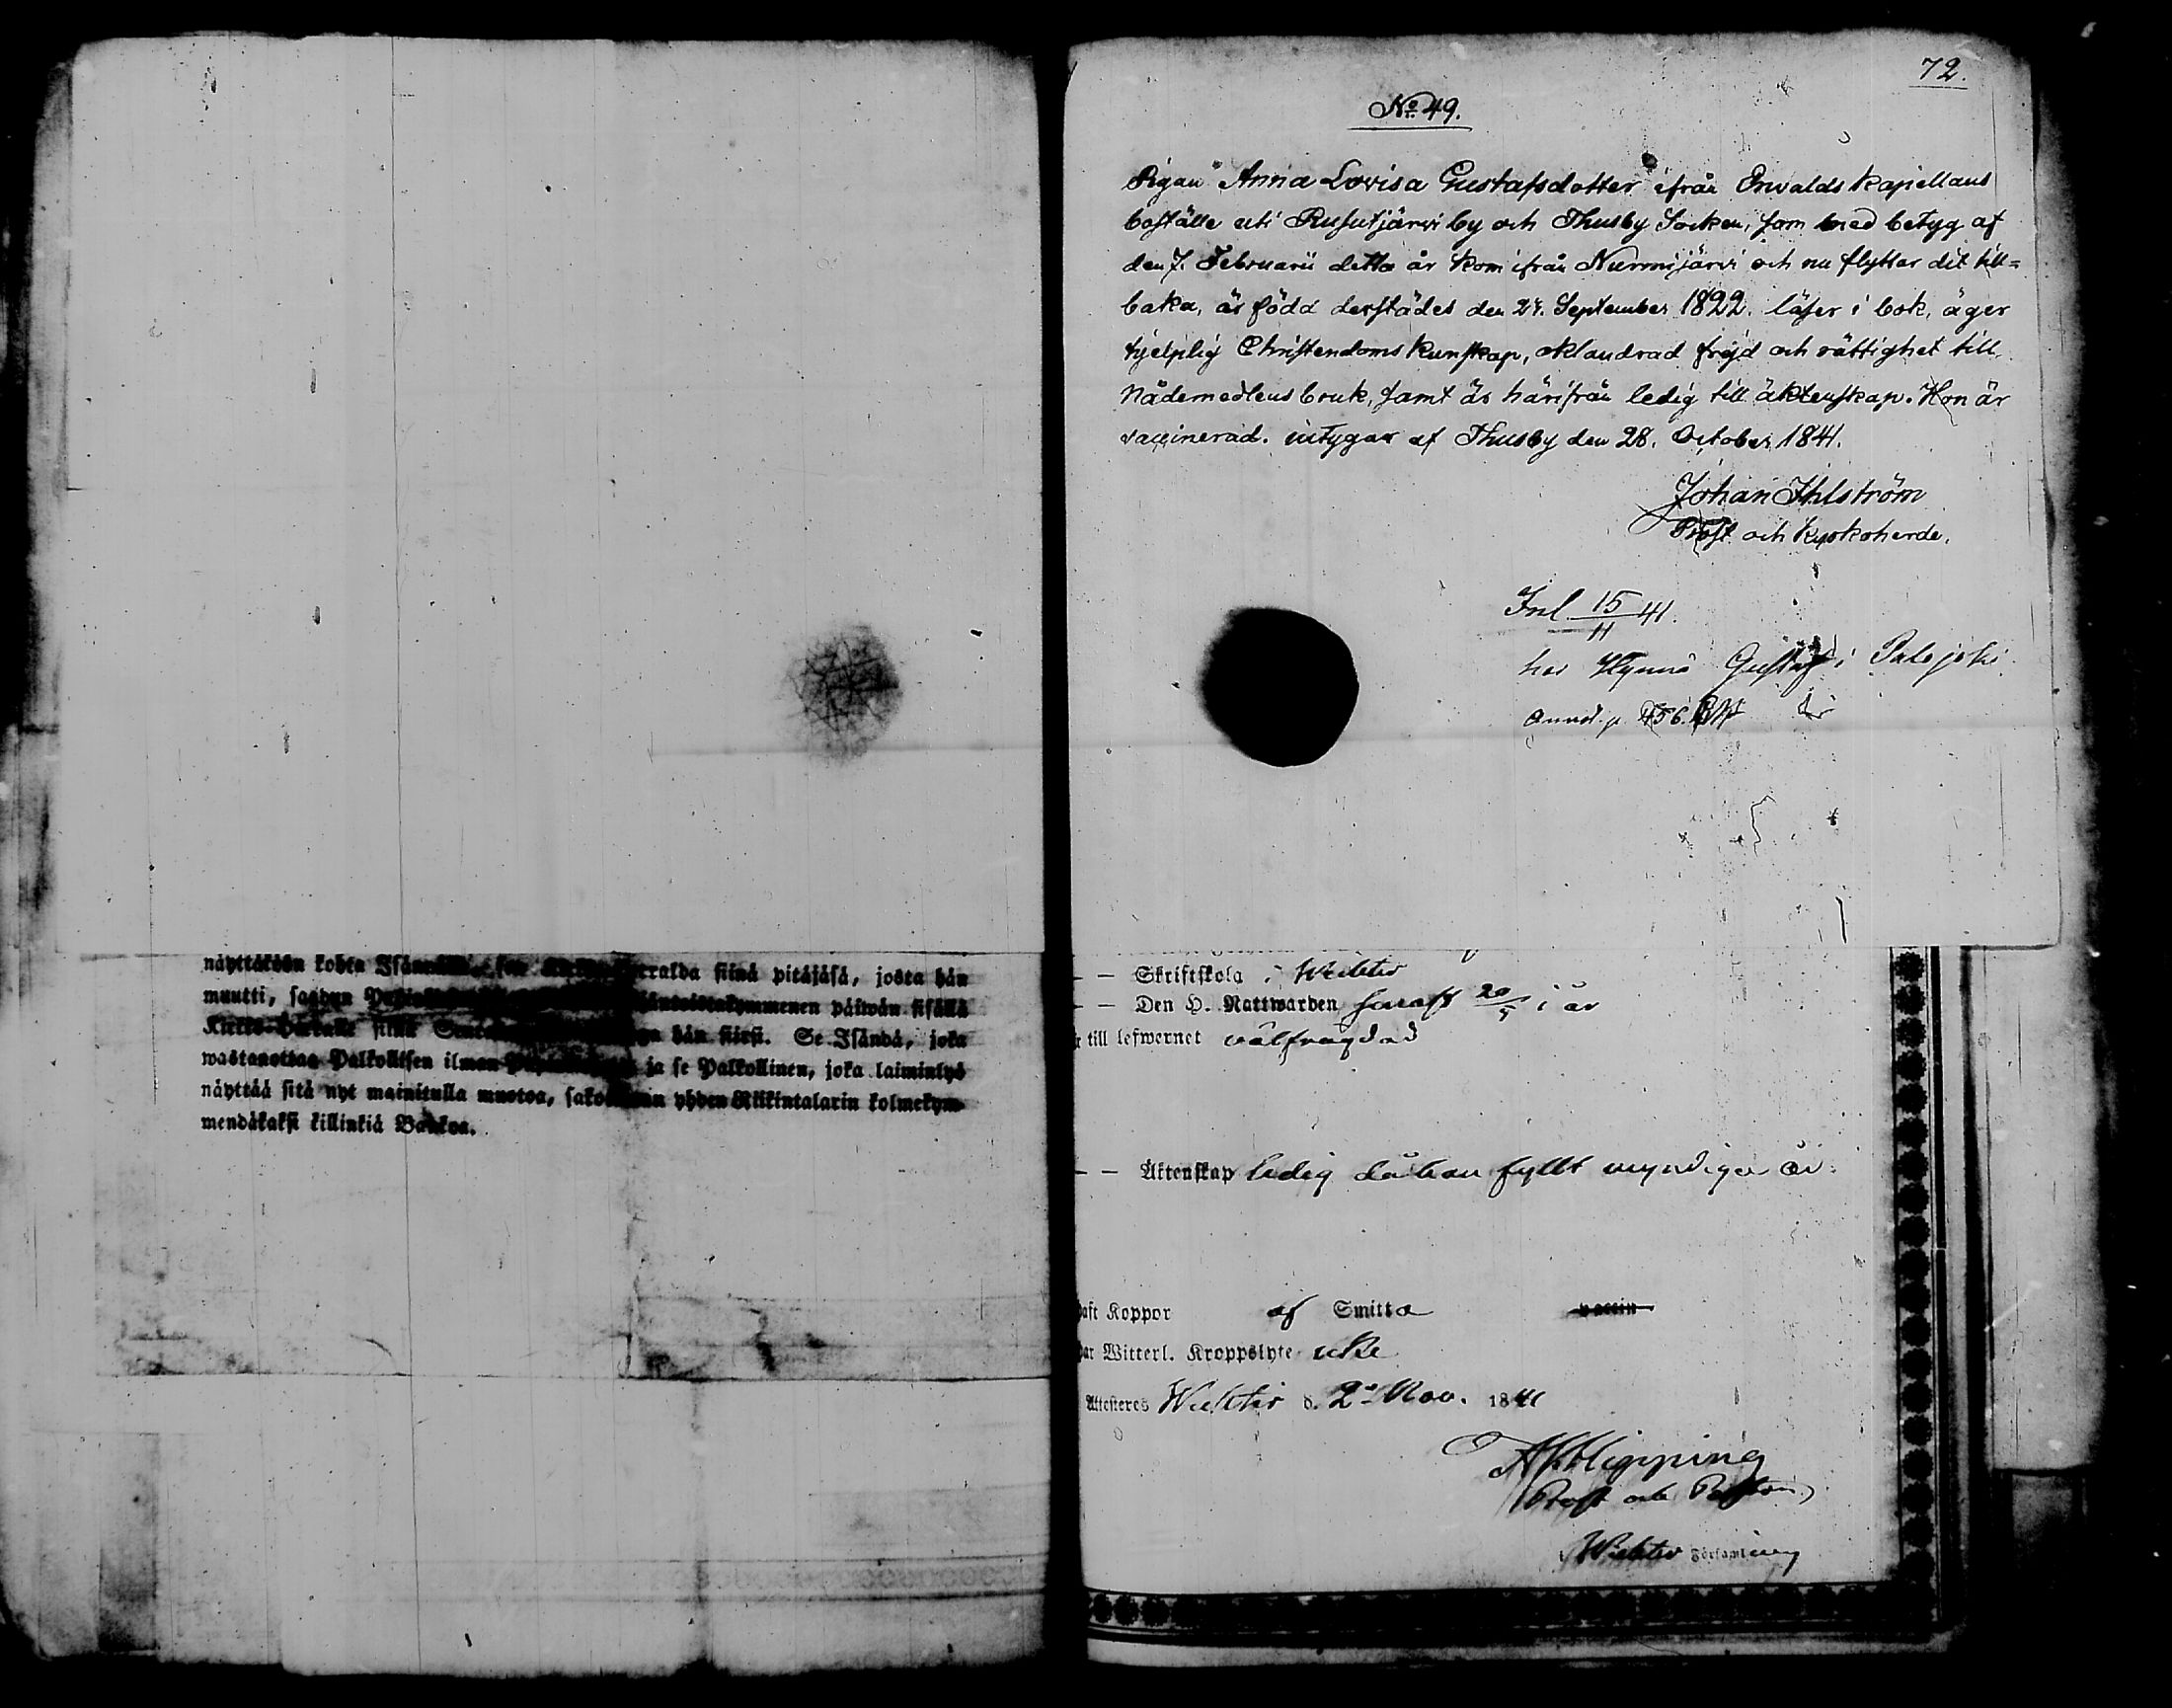 näyttäkään kohta Isän
rralda siinä pitäjäsä, josta hän
muutti, saadun
äntoistakymmenen päiwän sisällä
Kirko-Herralle siinä
hän siirsi. Se Isändä, joka
wastanottaa Palkollisen ilman
ja se Palkollinen, joka laiminlyö
näyttää sitä nyt mainitulla muotoa,
yhden Riikintalarin kolmekym-
mendäkaksi killinkiä Bankoa.
72.
No 49.
Pigan Anna Lovisa Gustafsdotter ifrån Onvalds Kapellans
boställe uti Rusutjärvi by och Thusby Socken, som med betyg af
den 7. Februarii detta år kom ifrån Nurmijärvi och nu flyttar dit till=
baka, är född derstädes den 24. September 1822. läser i bok, äger
hjelplig Christendoms kunskap, oklandrad frejd och rättighet till
Nådemedlens bruk, samt är härifrån ledig till äktenskap. Hon är
vaccinerad. intygar af Thusby den 28. October 1841.
Johan Ihlström
Prost och Kyrkoherde.
Inl. 15/11 41.
hos Hynnä Gustaf i Palojoki.
Annot. p. 456.
— — Skriftskola i Wichtis
— — Den H. Nattwarden senast 20/5 i år
till lefwernet välfrägdad
— — Äktenskap ledig då han fyllt myndiga år.
haft Koppor af Smitta vaccin
har Witterl. Kroppslyte icke
Attesteres Wichtis d. 2 Nov. 1841
AJHipping
Prost och Pastor i
Wichtis Församling